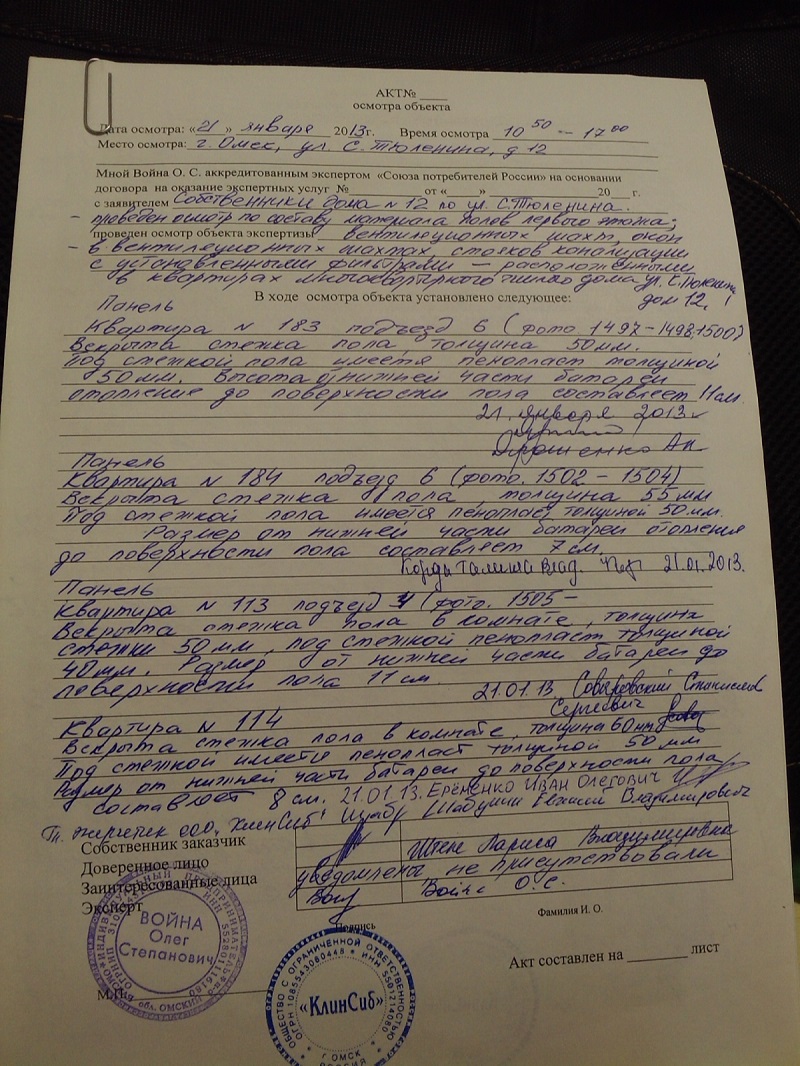 АКТ№ ____
осмотра объекта
Дата осмотра: «21» января 2013г. Время осмотра 10 50 – 17 00
Место осмотра: г. Омск, ул. С.Тюленина, д 12
Мной Война О. С. аккредитованным экспертом «Союза потребителей России» на основании
договора на оказание экспертных услуг №____ от «___» ____ 20__ г.
с заявителем Собственники дома N 12 по ул. С.Тюленина.
- проведен осмотр по составу материала полов первого этажа;
проведен осмотр объекта экспертизы вентиляционных шахт, окон
- в вентиляционных шахтах стояков канализации
с установленными фильтрами – расположенными
в квартирах многоквартирного жилого дома ул. С.Тюленина
В ходе осмотра объекта установлено следующее: дом 12.
Панель
Квартира N 183 подъезд 6 (фото 1497-1498,1500)
Вскрыта стежка пола, толщина 50 мм.
Под стежкой пола имеется пенопласт толщиной
50 мм. Высота от нижней части батареи
отопление до поверхности пола составляет 11 см.
21. января 2013 г
Панель
Квартира N 184 подъезд 6 (фото. 1502 - 1504)
Вскрыта стежка пола, толщина 55 мм
Под стежкой пола имеется пенопласт толщиной 50 мм.
Размер от нижней части батареи отопления
до поверхности пола составляет 7 см.
21.01.2013.
Панель
Квартира N 113 подъезд 4 (фото. 1505 –
Вскрыта стежка пола в комнате, толщина
стежки 50 мм, под стежкой пенопласт толщиной
40 мм. Размер от нижней части батареи до
поверхности пола 11 см.
21.01.13 Станислав
Сергеевич
Квартира N 114
Вскрыта стежка пола в комнате, толщина 60 мм
Под стежкой имеется пенопласт толщиной 50 мм
Размер от нижней части батареи до поверхности пола
составляет 8 см. 21.01.13. Ерёменко Иван Олегович
Гл. энергетик ООО "КлинСиб" Евгений Владимирович
Собственник заказчик Штенс Лариса Владимировна
Доверенное лицо
Заинтересованные лица уведомлены не присутствовали
Эксперт Война О.С.
Подпись Фамилия И. О.
Акт составлен на ____ лист
М.П.
ИНДИВИДУАЛЬНЫЙ ПРЕДПРИНИМАТЕЛЬ
ВОЙНА
Олег
Степанович
обл. ОМСКАЯ
ОБЩЕСТВО С ОГРАНИЧЕННОЙ ОТВЕТСТВЕННОСТЬЮ
ОГРН 1085543060448 * ИНН 5501214080
«КлинСиб»
Г ОМСК
РОССИЯ